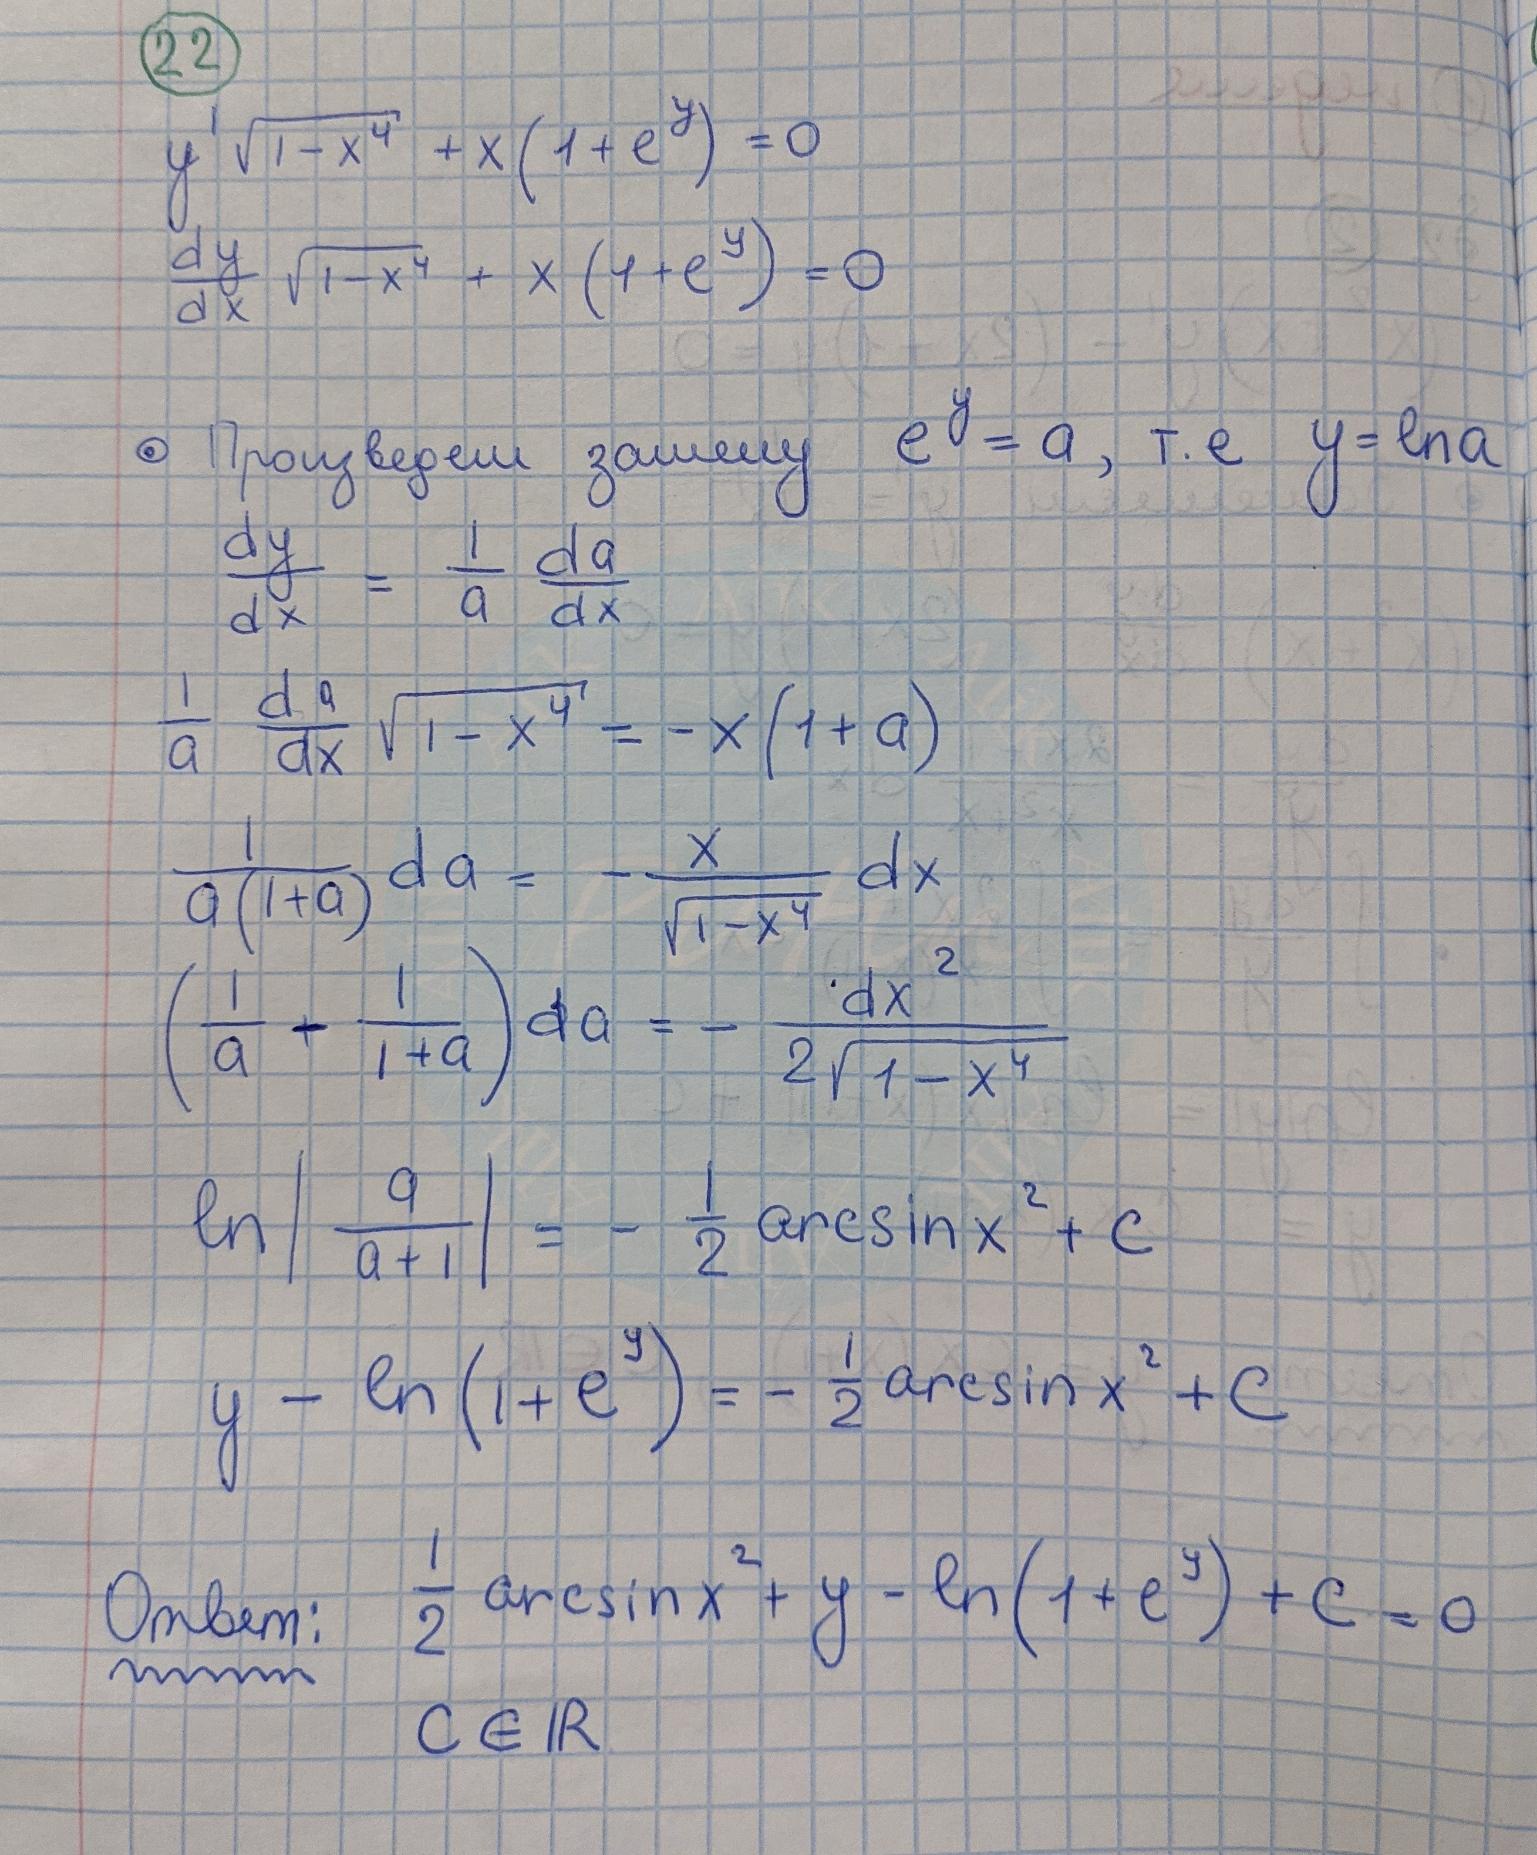 22
y'√(1-x⁴) + x(1+e^y) = 0
dy/dx √(1-x⁴) + x(1+e^y) = 0
⊙ Произведем замену e^y = a, т.е y = ln a
dy/dx = 1/a da/dx
1/a da/dx √(1-x⁴) = -x(1+a)
1/(a(1+a)) da = - x/√(1-x⁴) dx
(1/a + 1/(1+a)) da = - dx²/(2√(1-x⁴))
ln|a/(a+1)| = - 1/2 arcsin x² + c
y - ln(1+e^y) = - 1/2 arcsin x² + C
Ответ: 1/2 arcsin x² + y - ln(1+e^y) + C = 0
C ∈ ℝ